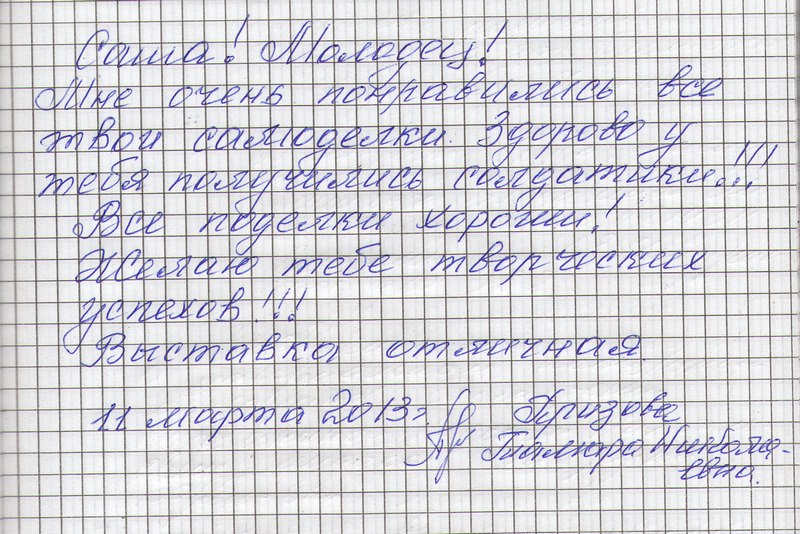 Саша! Молодец!
Мне очень понравились все
твои самоделки. Здорово у
тебя получились солдатики...!!!
Все поделки хороши!
Желаю тебе творческих
успехов!!!
Выставка отличная.
11 марта 2013 г. Призова
Никола-
евна.